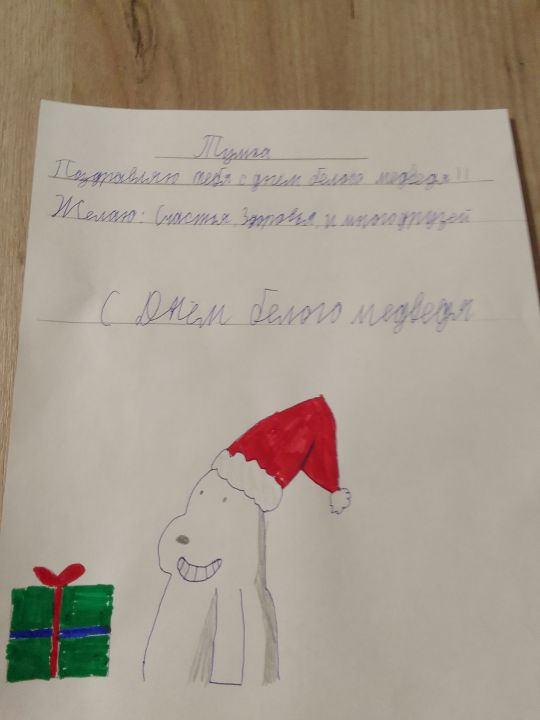 Тумга
Поздравляю тебя с днем белого медведя!!
Желаю: Счастья Здоровья, и много друзей
С Днём белого медведя